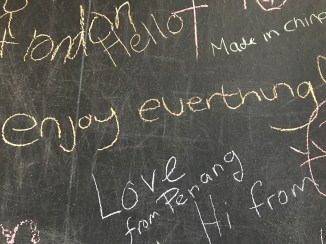 London
Hello
Made in China
enjoy everthing!
Love
from Penang
Hi from